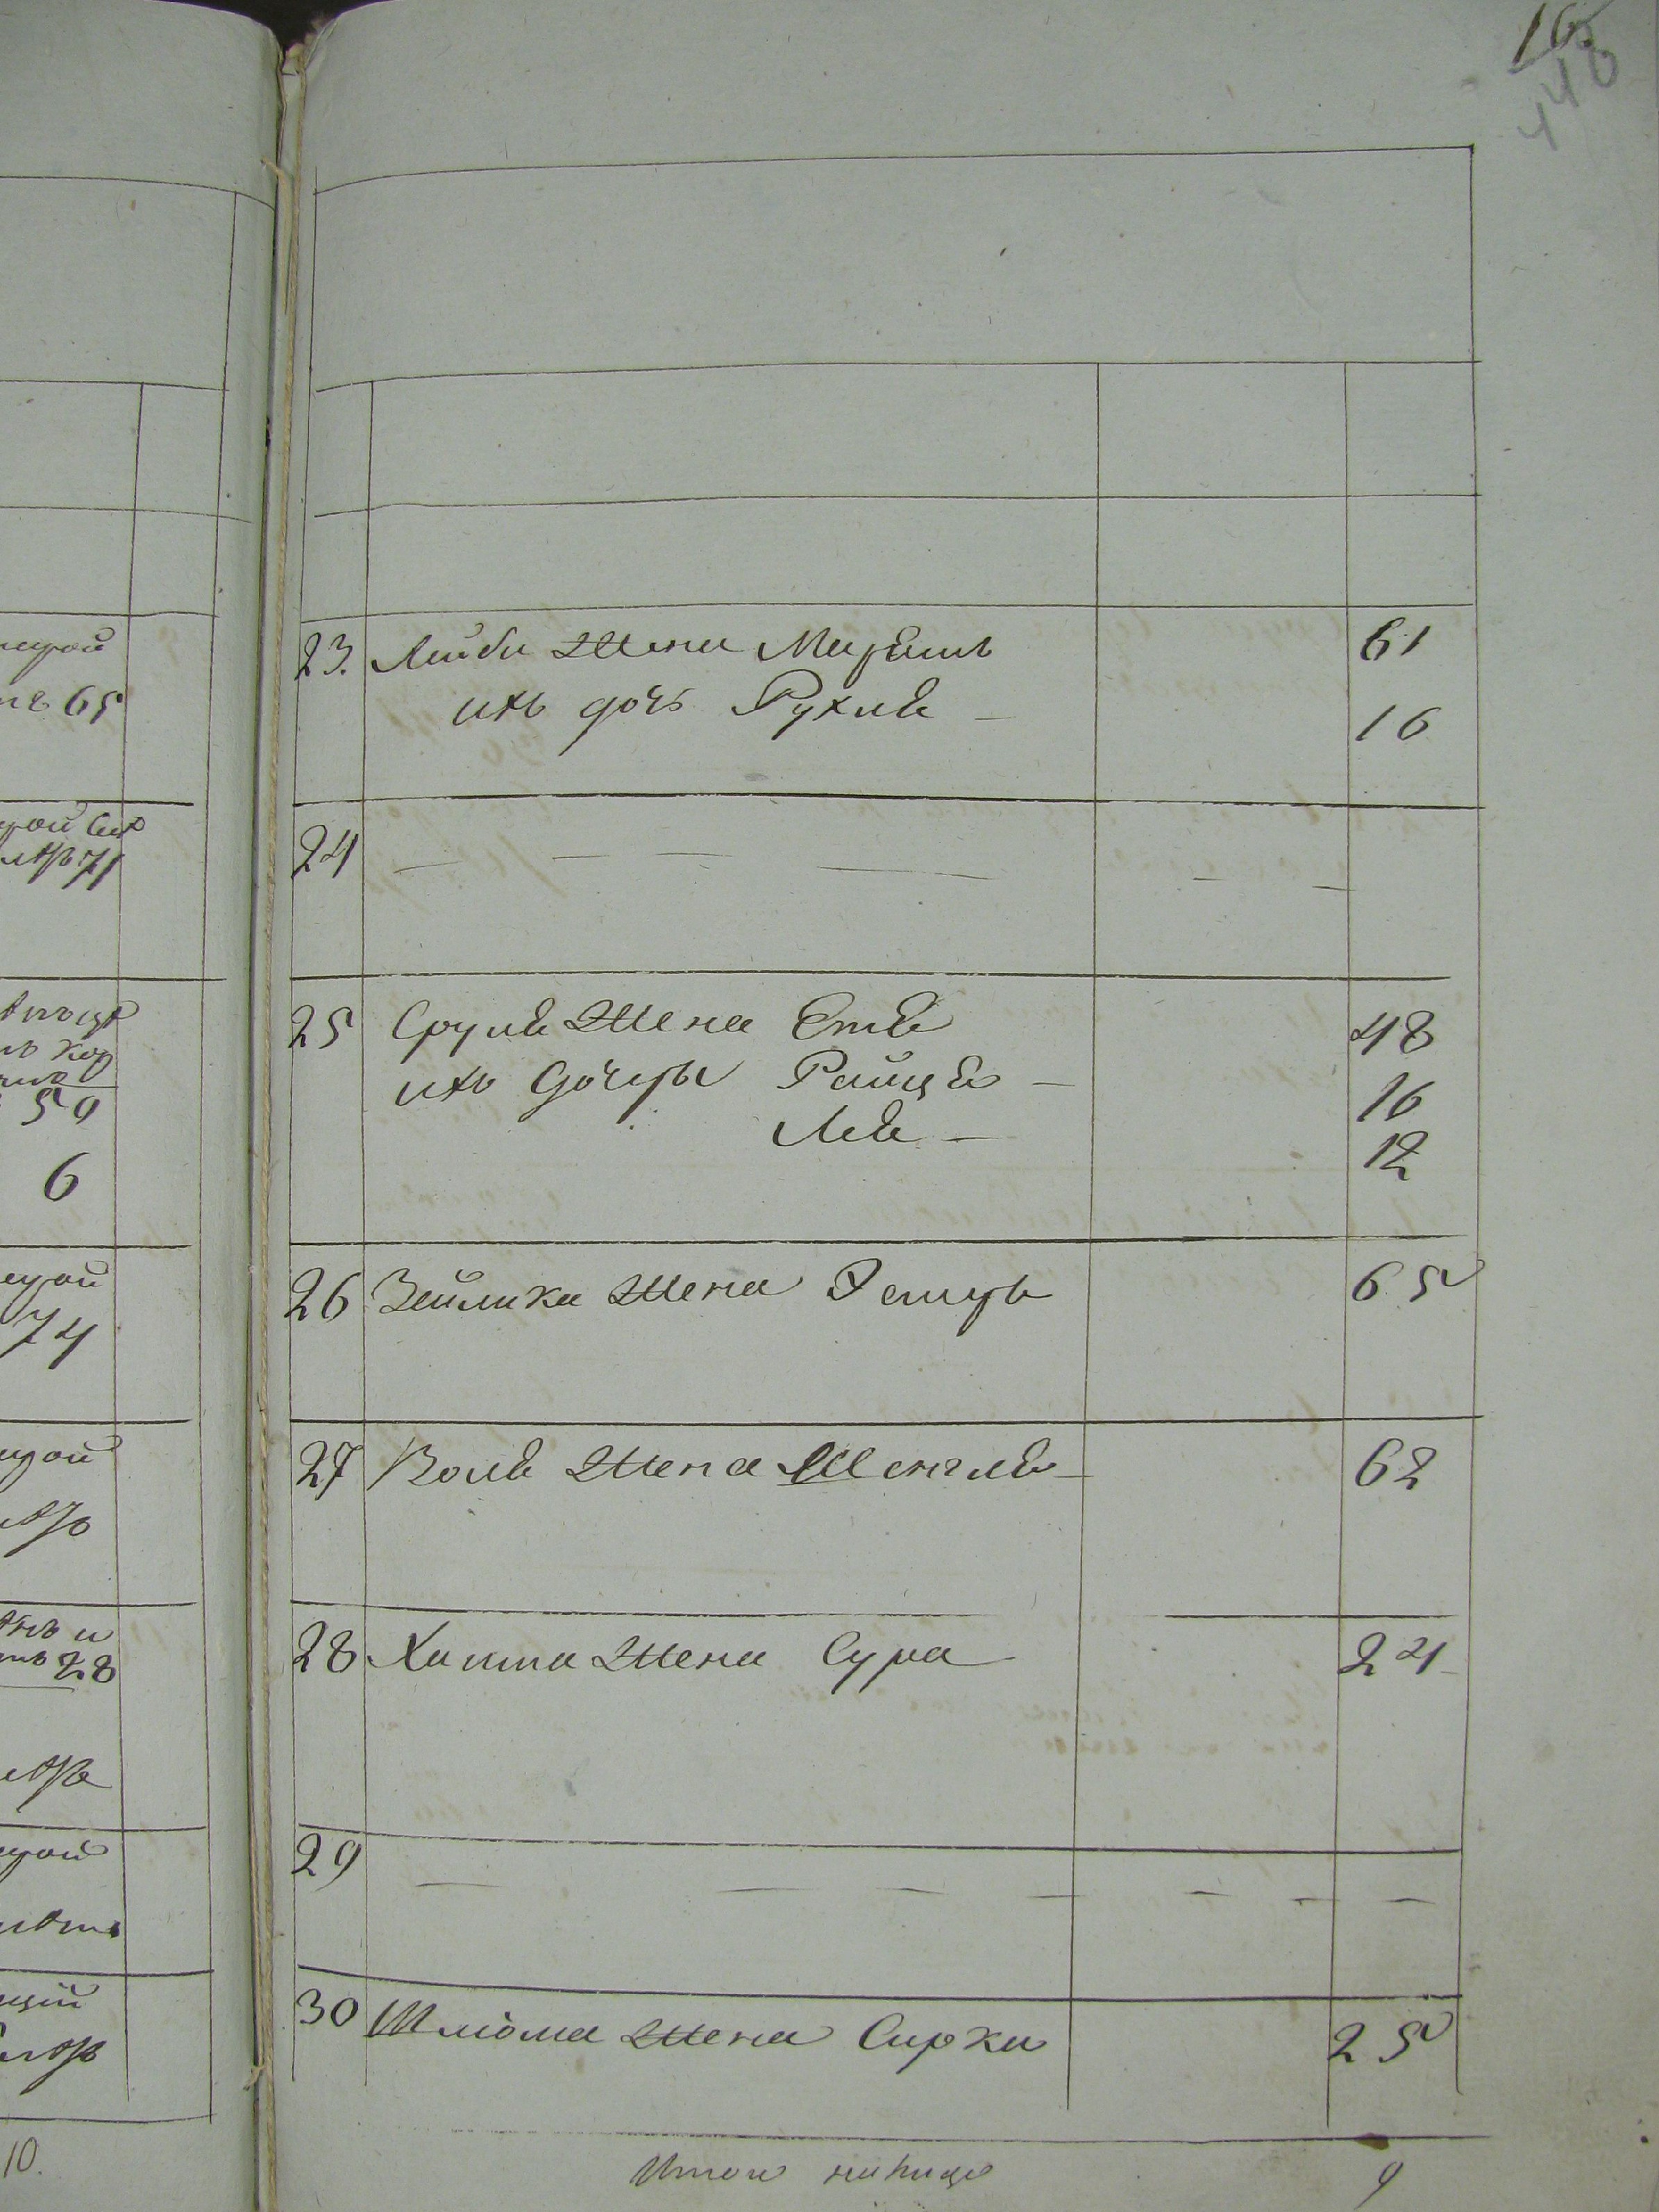 16
440
65
71
59
6
74
28
10.
23. Лейби жена Мариамъ 61
ихъ дочь Рухля — 16
24 — — — — — —
25 Сруля жена Етя 48
ихъ дочеры Райця — 16
Лея — 12
26 Зейлика жена Эстеръ 65
27 Воля жена Шенгля — 62
28 Хаима жена Сура 24
29 — — — — — — —
30 Шліома жена Сирка 25
Итого налицо 9